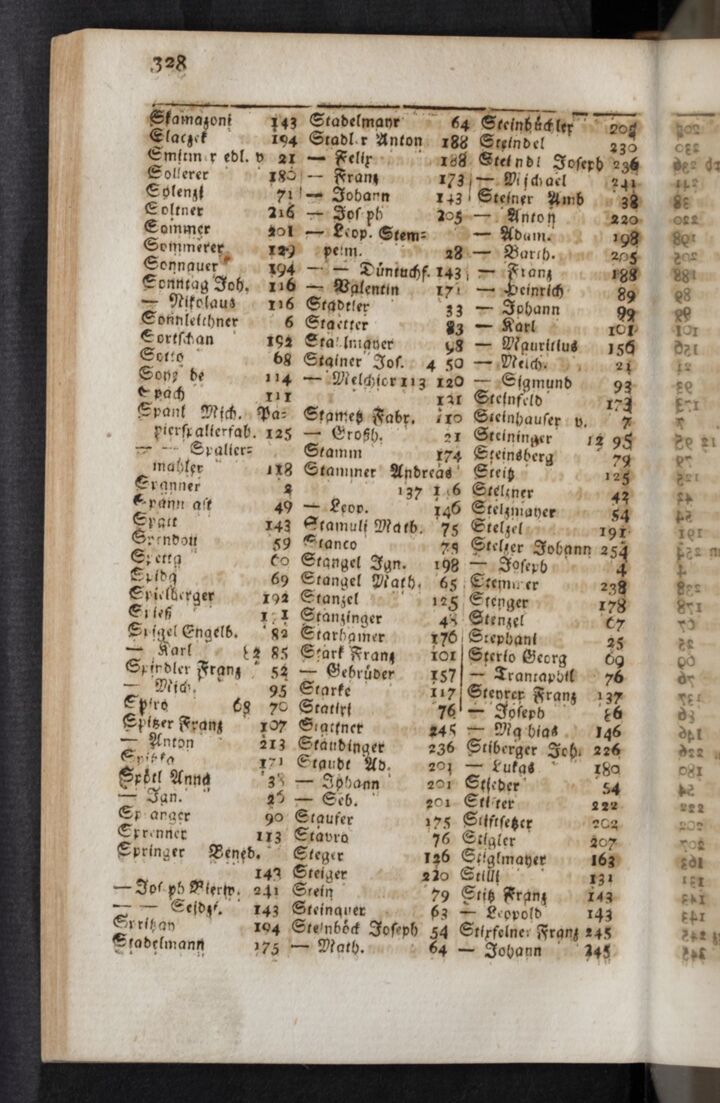 328
Skamazoni 143
Slaczek 194
edl. v 21
Sollerer 180
71
Soltner 216
Sommer 201
Sommerer 129
Sonnauer 194
Sonntag Joh. 116
— Nikolaus 116
Sonnleithner 6
Sortschan 192
68
de 114
111
Spanl Mich. Pa-
pierspalierfab. 125
— — Spalier-
mahler 118
Spanner 2
49
143
59
Spetta 60
69
Spielberger 192
Spieß
Spigel Engelb. 82
— Karl 85
Spindler Franz 52
— Mich. 95
Spiro 68 70
Spitzer Franz 107
— Anton 213
171
Spötl Anna
— Ign. 26
90
Sprenner 113
Springer Bened.
143
— Joseph Bierw. 241
— — Seidzf. 143
194
Stadelmann 175
Stadelmayr 64
Stadler Anton 188
— Felix 188
— Franz 173
— Johann 143
— Joseph 205
— Leop. Stem-
pelm. 28
— — Düntuchf. 143
— Valentin 171
Stadtler 33
Staetter 83
Stallmayer 98
Stainer Jos. 4 50
— Melchior 113 120
121
Stametz Fabr. 110
— Großh. 21
Stamm 174
Stammer Andreas
137
— Leop. 146
Stamuli Math. 75
Stanco 75
Stangel Ign. 198
Stangel Math. 65
Stanzel 125
Stanzinger 48
Starhamer 176
Stark Franz 101
— Gebrüder 157
Starke 117
Statiri 76
Stattner 245
Staudinger 236
Staudt Ad. 201
— Johann 201
— Seb. 201
Staufer 175
Stavro 76
Steger 126
Steiger 220
Stein 79
Steinauer 63
Steinböck Joseph 54
— Math. 64
Steinbüchler 205
Steindel 230
Steindl Joseph 236
— Michael 241
Steiner Amb 38
— Anton 220
— Adam. 198
— Barth. 205
— Franz 188
— Heinrich 89
— Johann 99
— Karl 101
— Mauritius 156
— Melch. 21
— Sigmund 93
Steinfeld 173
Steinhauser v. 7
Steininger 12 95
Steinsberg 79
Steitz 125
Stellner 42
Stelzmayer 54
Stelzel 191
Stelzer Johann 254
— Joseph 4
238
Stenger 178
Stenzel 67
Stephani 25
Sterio Georg 69
— Trantaphil 76
Steyrer Franz 137
— Joseph 86
— Mathias 146
Stiberger Joh. 226
— Lukas 180
Stieber 54
222
Stiftsetzer 202
Stigler 207
Stiglmayer 163
131
Stitz Franz 143
— Leopold 143
Stixfelner Franz 245
— Johann 245